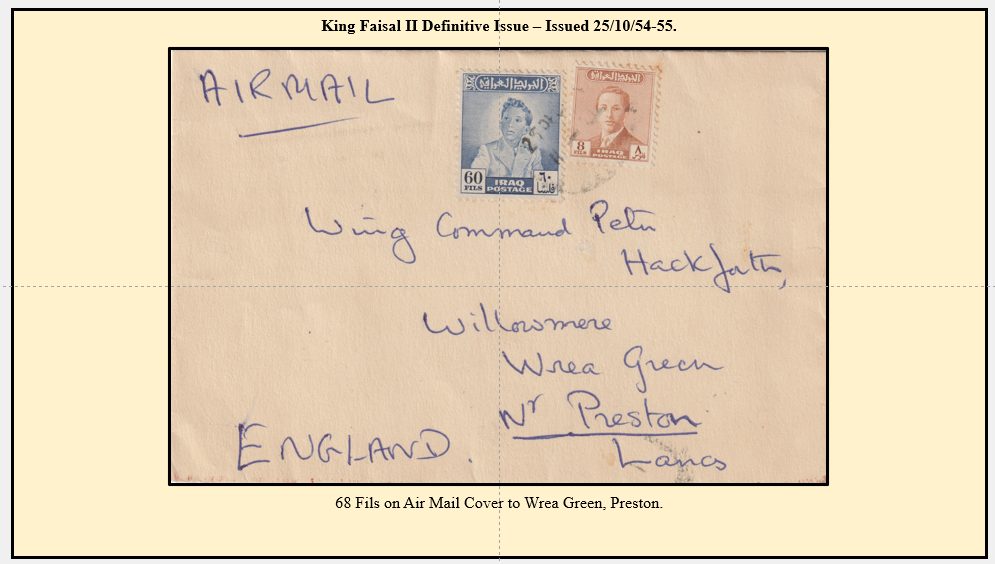 King Faisal II Definitive Issue – Issued 25/10/54-55.
AIRMAIL
الدولة العراقية
60
FILS
IRAQ
POSTAGE
٦٠
فلسا
الدولة العراقية
8
FILS
IRAQ
POSTAGE
٨
فلوس
Wing Command Peter
Hackforth,
Willowmere
Wrea Green
Nr Preston
Lancs
ENGLAND.
68 Fils on Air Mail Cover to Wrea Green, Preston.